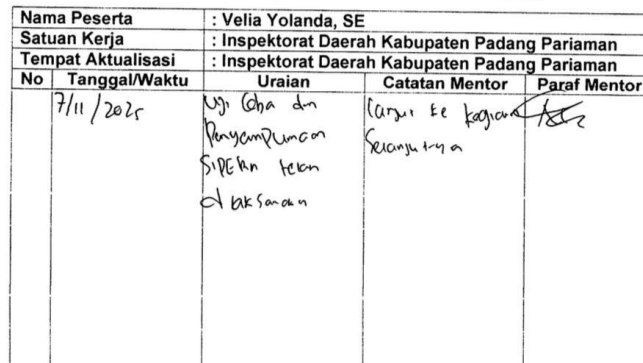 Nama Peserta : Velia Yolanda, SE
Satuan Kerja : Inspektorat Daerah Kabupaten Padang Pariaman
Tempat Aktualisasi : Inspektorat Daerah Kabupaten Padang Pariaman
No Tanggal/Waktu Uraian Catatan Mentor Paraf Mentor
7/11/2025 Uji Coba dan Lanjut ke kegiatan
Penyempurnaan Selanjutnya
telah
dilaksanakan